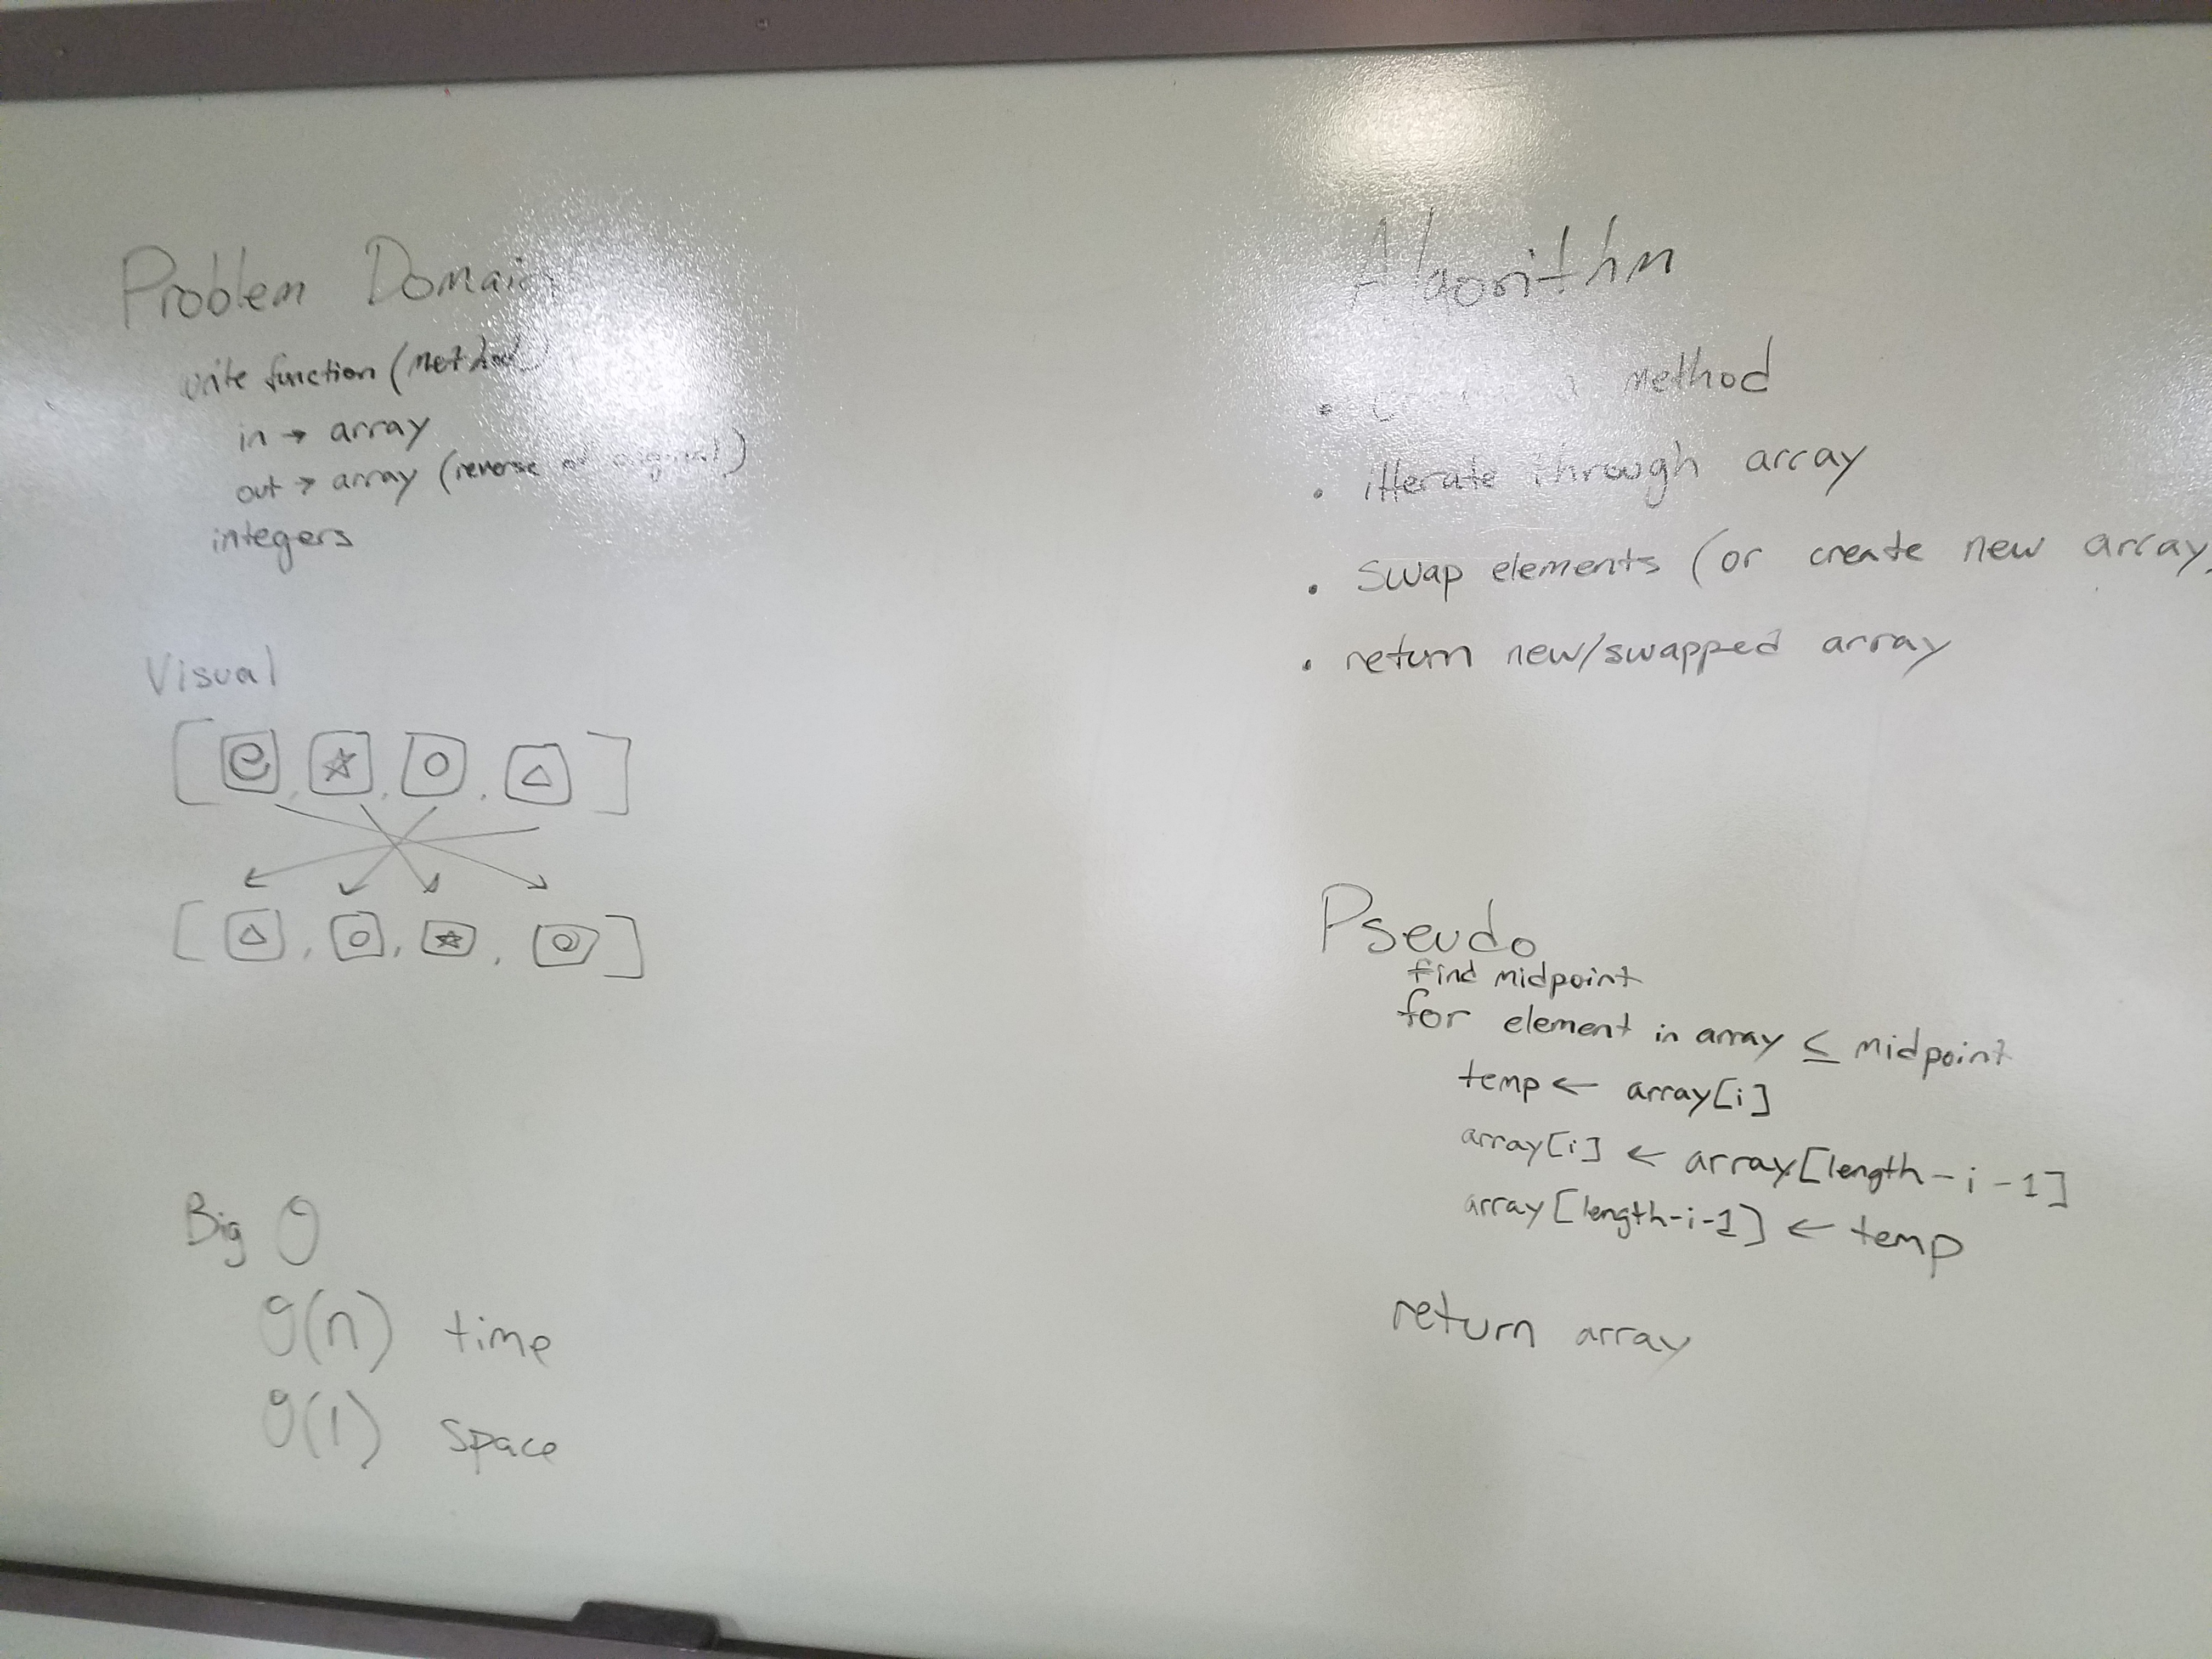 Problem Domain
write function (method)
in → array
out → array (reverse of original)
integers
Visual
[ , , , ]
[ , , , ]
Big O
O(n) time
O(1) space
Algorithm
• create a method
• itterate through array
• Swap elements (or create new array
• return new/swapped array
Pseudo
find midpoint
for element in array ≤ midpoint
temp ← array[i]
array[i] ← array[length-i-1]
array[length-i-1] ← temp
return array